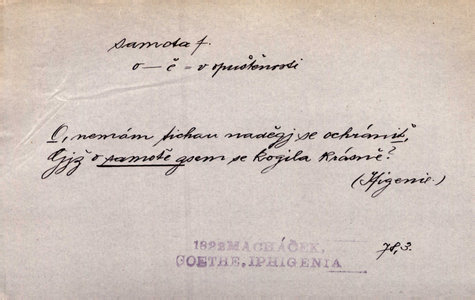 samota f.
o – ě = v opuštěnosti
O, nemám tichau naděgj se ochrániť,
Gjž o samotě gsem se kogila krásně?
(Ifigenie.)
1822 MACHÁČEK,
GOETHE, IPHIGENIA
78, 3.